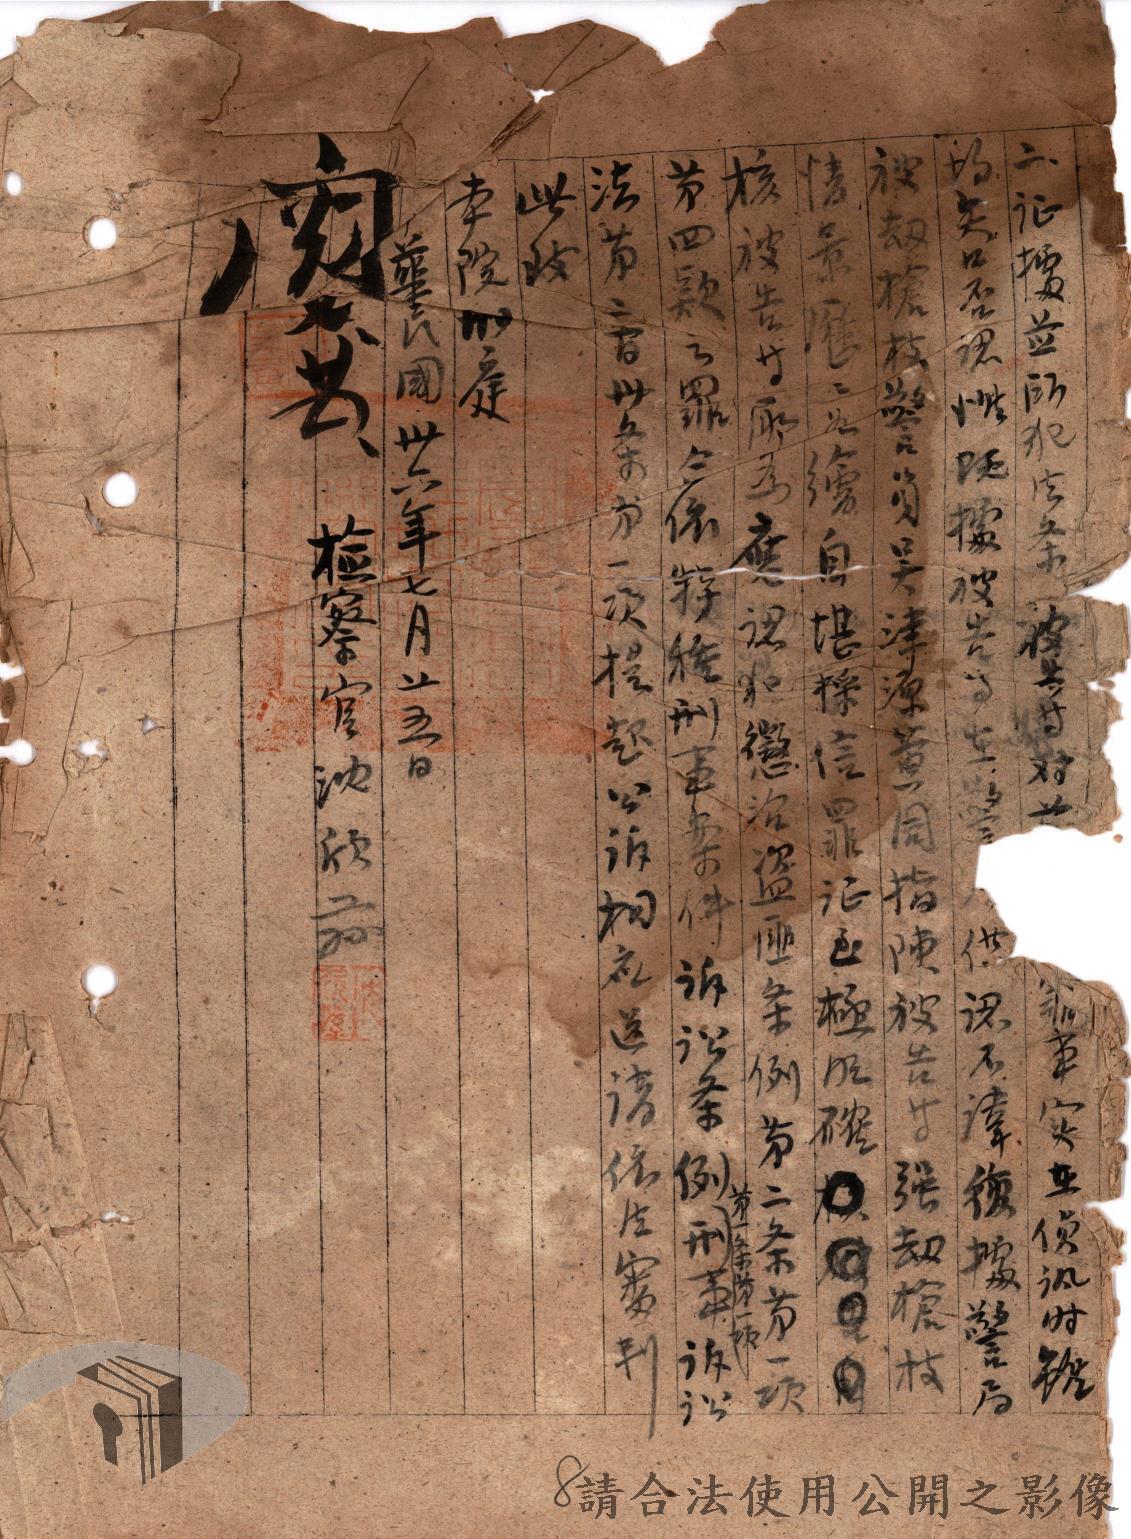 二、証據並所犯法条 被告等对 罪事实在偵訊时雖
均矢口否認惟既據被告等在警 供認不諱復據警局
被劫槍枝警員吳津源黃同指陳被告等强劫槍枝
情景歷歷如繪自堪採信罪証至極明確
核被告等所為應認犯懲治盜匪条例第二条第一項
第四款之罪合依特種刑事案件訴訟条例第一条第一項刑事訴訟
法第二百卅条第一項提起公訴相應送請依法審判
此致
本院刑庭
華民國卅六年七月廿五日
檢察官沈
8
請合法使用公開之影像